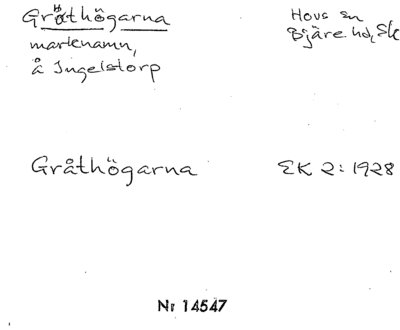 Gråthögarna
marknamn,
å Ingelstorp
Hovs sn
Bjäre hd, Sk
Gråthögarna
EK 2: 1928
Nr 14547